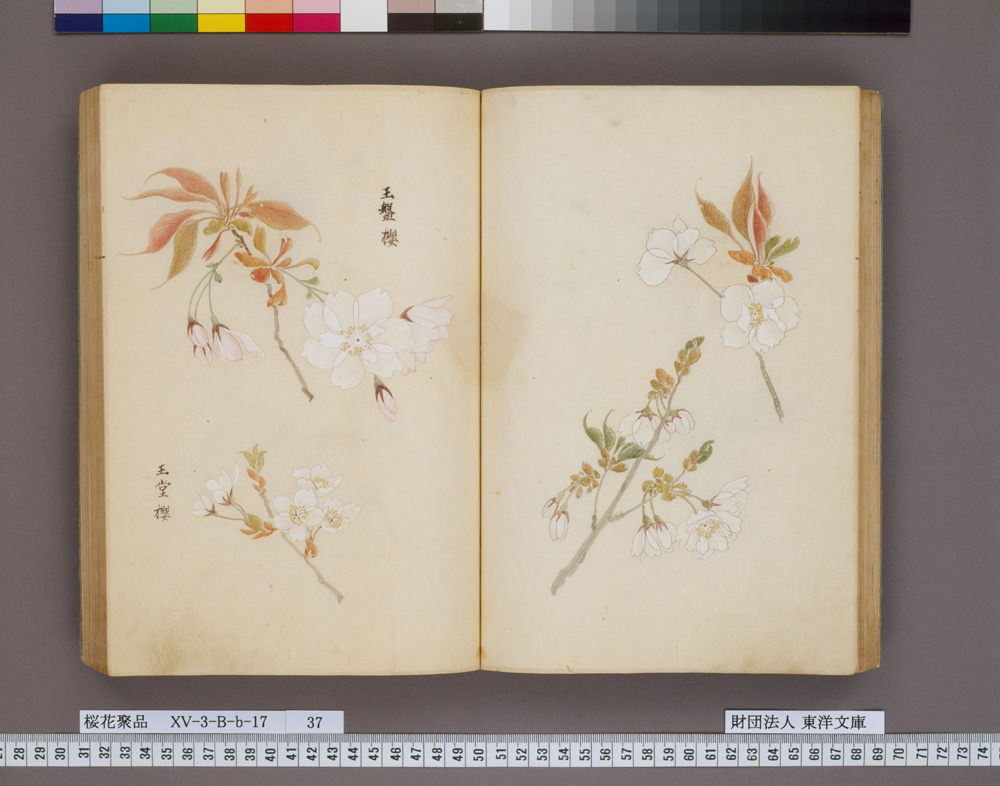 玉盤櫻
玉堂櫻
桜花聚品 XV-3-B-b-17 37
財団法人 東洋文庫
27 28 29 30 31 32 33 34 35 36 37 38 39 40 41 42 43 44 45 46 47 48 49 50 51 52 53 54 55 56 57 58 59 60 61 62 63 64 65 66 67 68 69 70 71 72 73 74